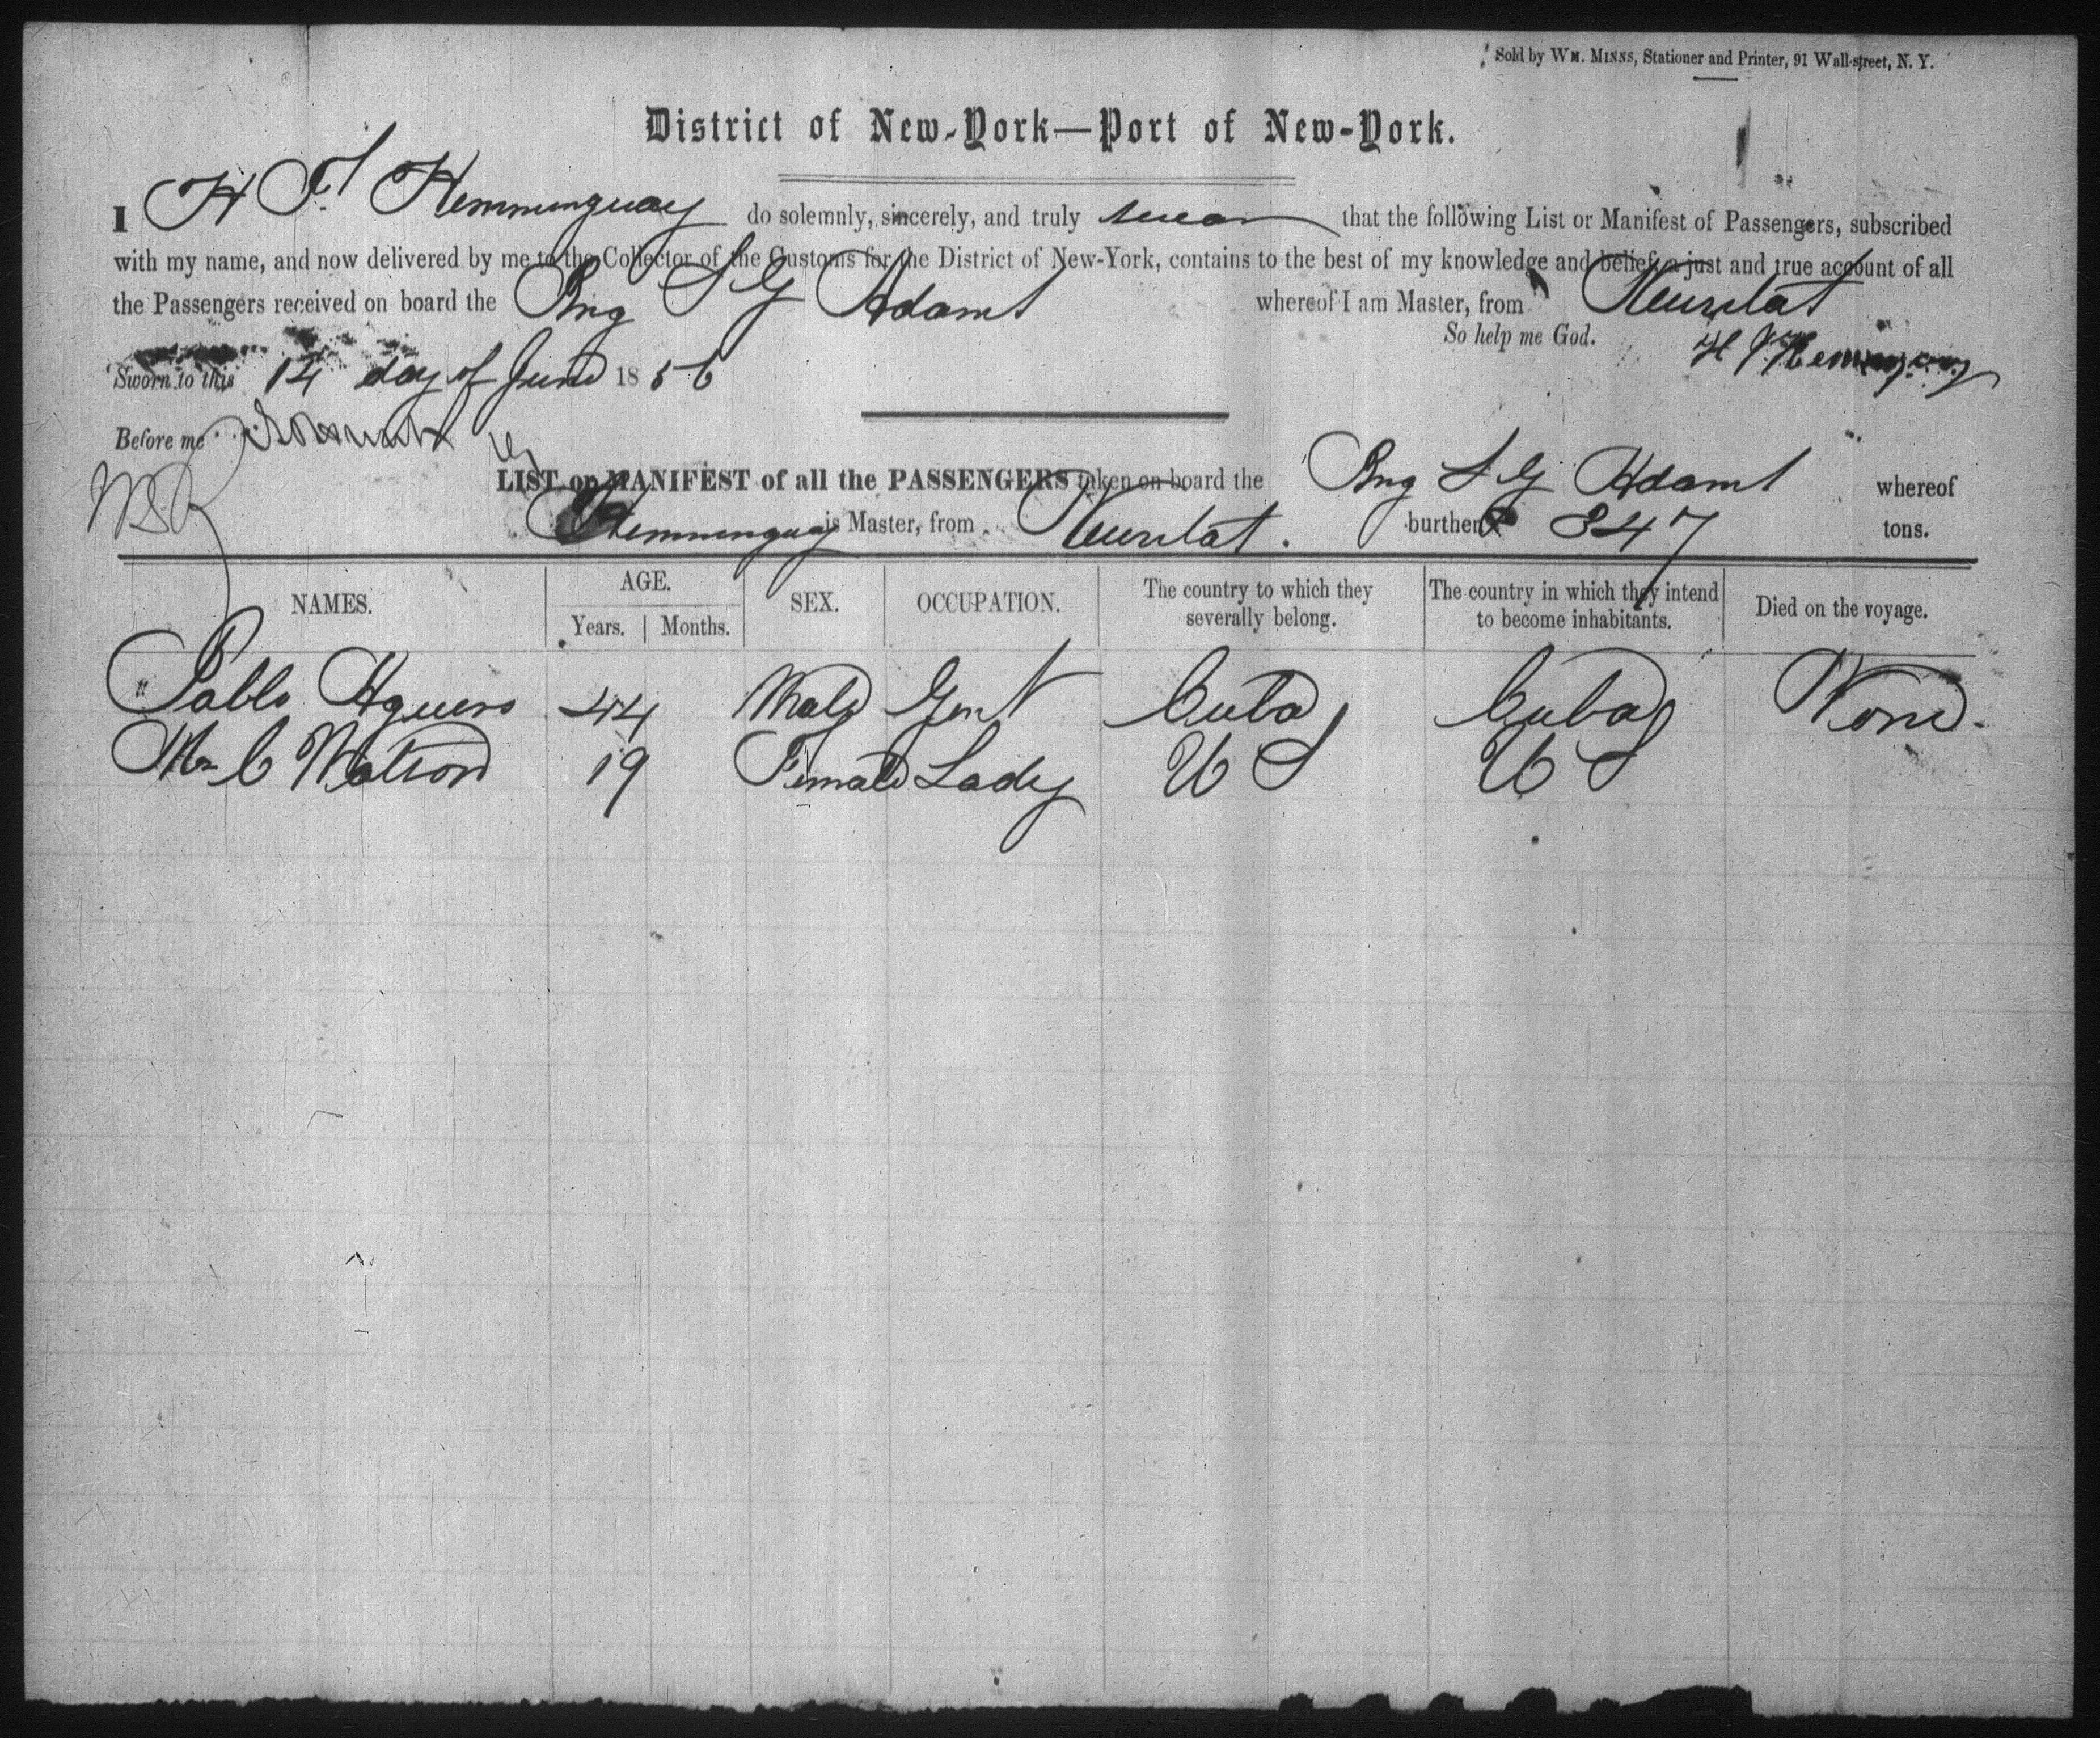 Sold by WM. MINNS, Stationer and Printer, 91 Wall-street, N. Y.
District of New-York—Port of New-York.
I H Hemminguay do solemnly, sincerely, and truly swear that the following List or Manifest of Passengers, subscribed
with my name, and now delivered by me to the Collector of the Customs for the District of New-York, contains to the best of my knowledge and belief, a just and true account of all
the Passengers received on board the Brig S G Adams whereof I am Master, from Nuevitas
So help me God.
Sworn to this 14 day of June 1856
Before me
LIST or MANIFEST of all the PASSENGERS taken on board the Brig S G Adams whereof
Hemminguay is Master, from Nuevitas. burthen 347 tons.
NAMES. AGE. Years. Months. SEX. OCCUPATION. The country to which they severally belong. The country in which they intend to become inhabitants. Died on the voyage.
Pablo Aguero 44 Male Gent Cuba Cuba None.
C Watson 19 Female Lady U S U S